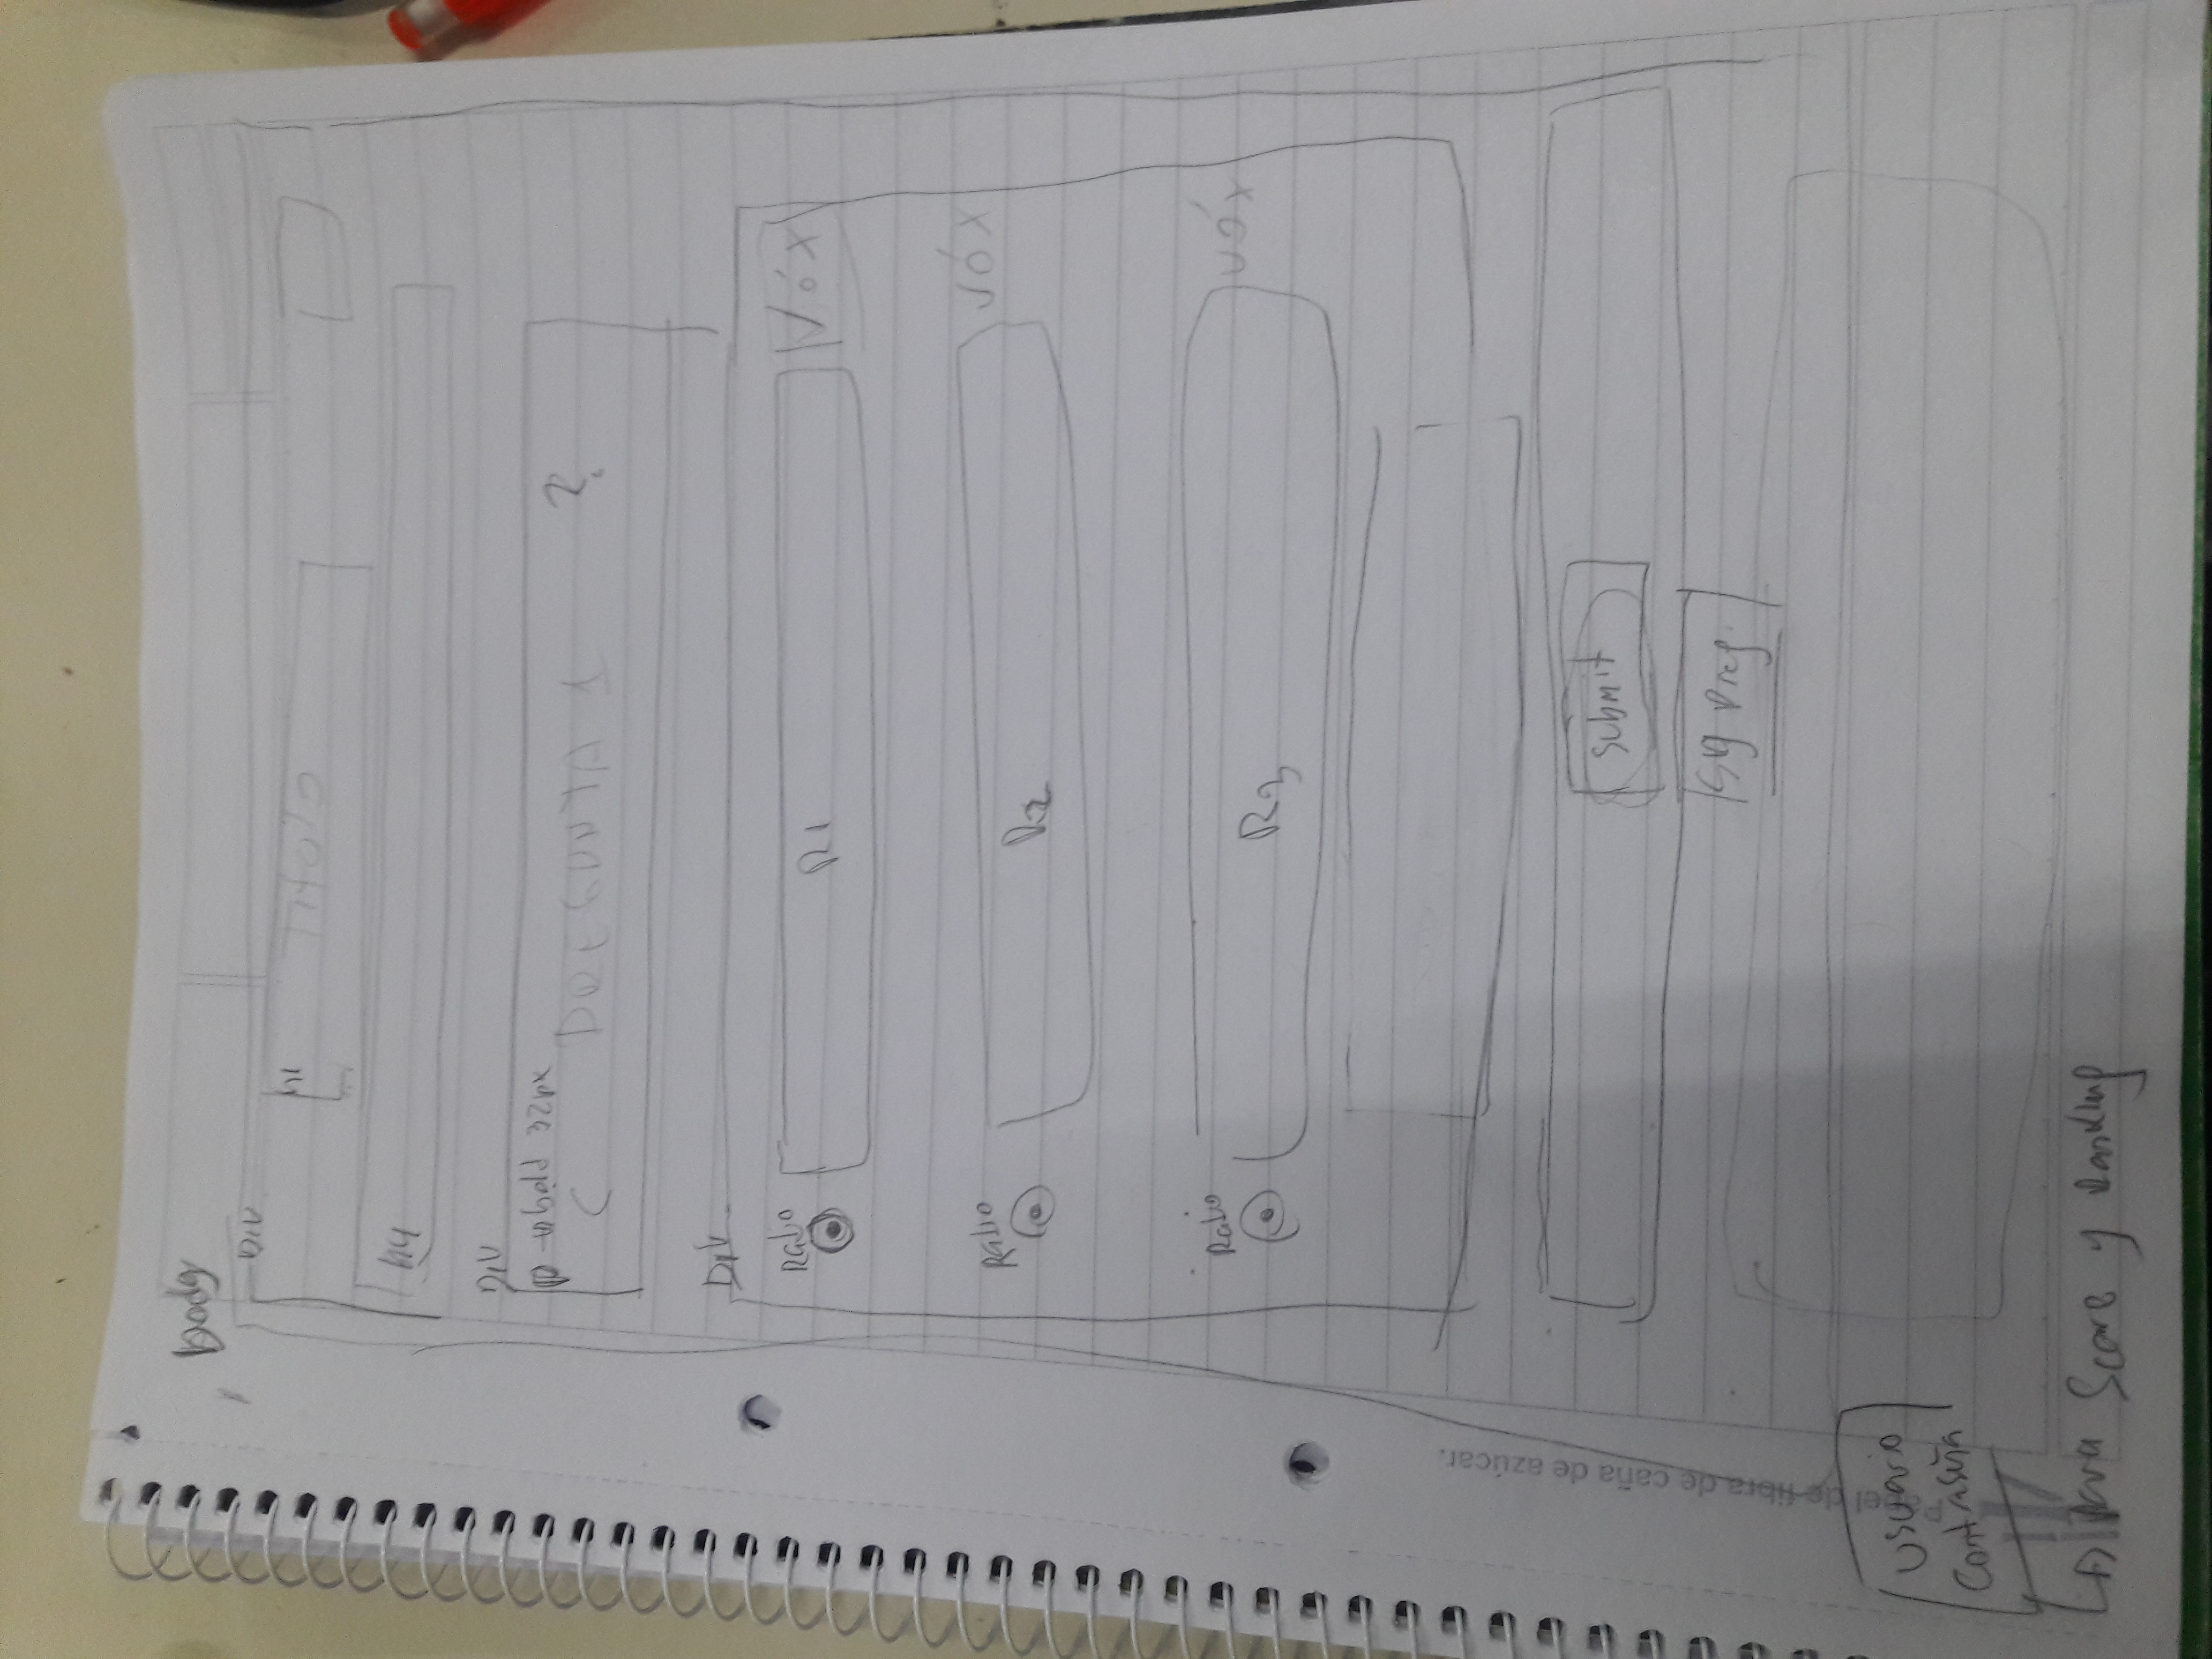 Body
Div
h1 Titolo
h4
Div
p → bold 32px
¿ PREGUNTA 1 ?
Div
Ratio
R1 √ ó X
Ratio
R2 √ ó X
Ratio
R3 √ ó X
Submit
Sig Preg.
Papel de fibra de caña de azúcar.
Usuario
Contraseña
→ Para Score y Ranking